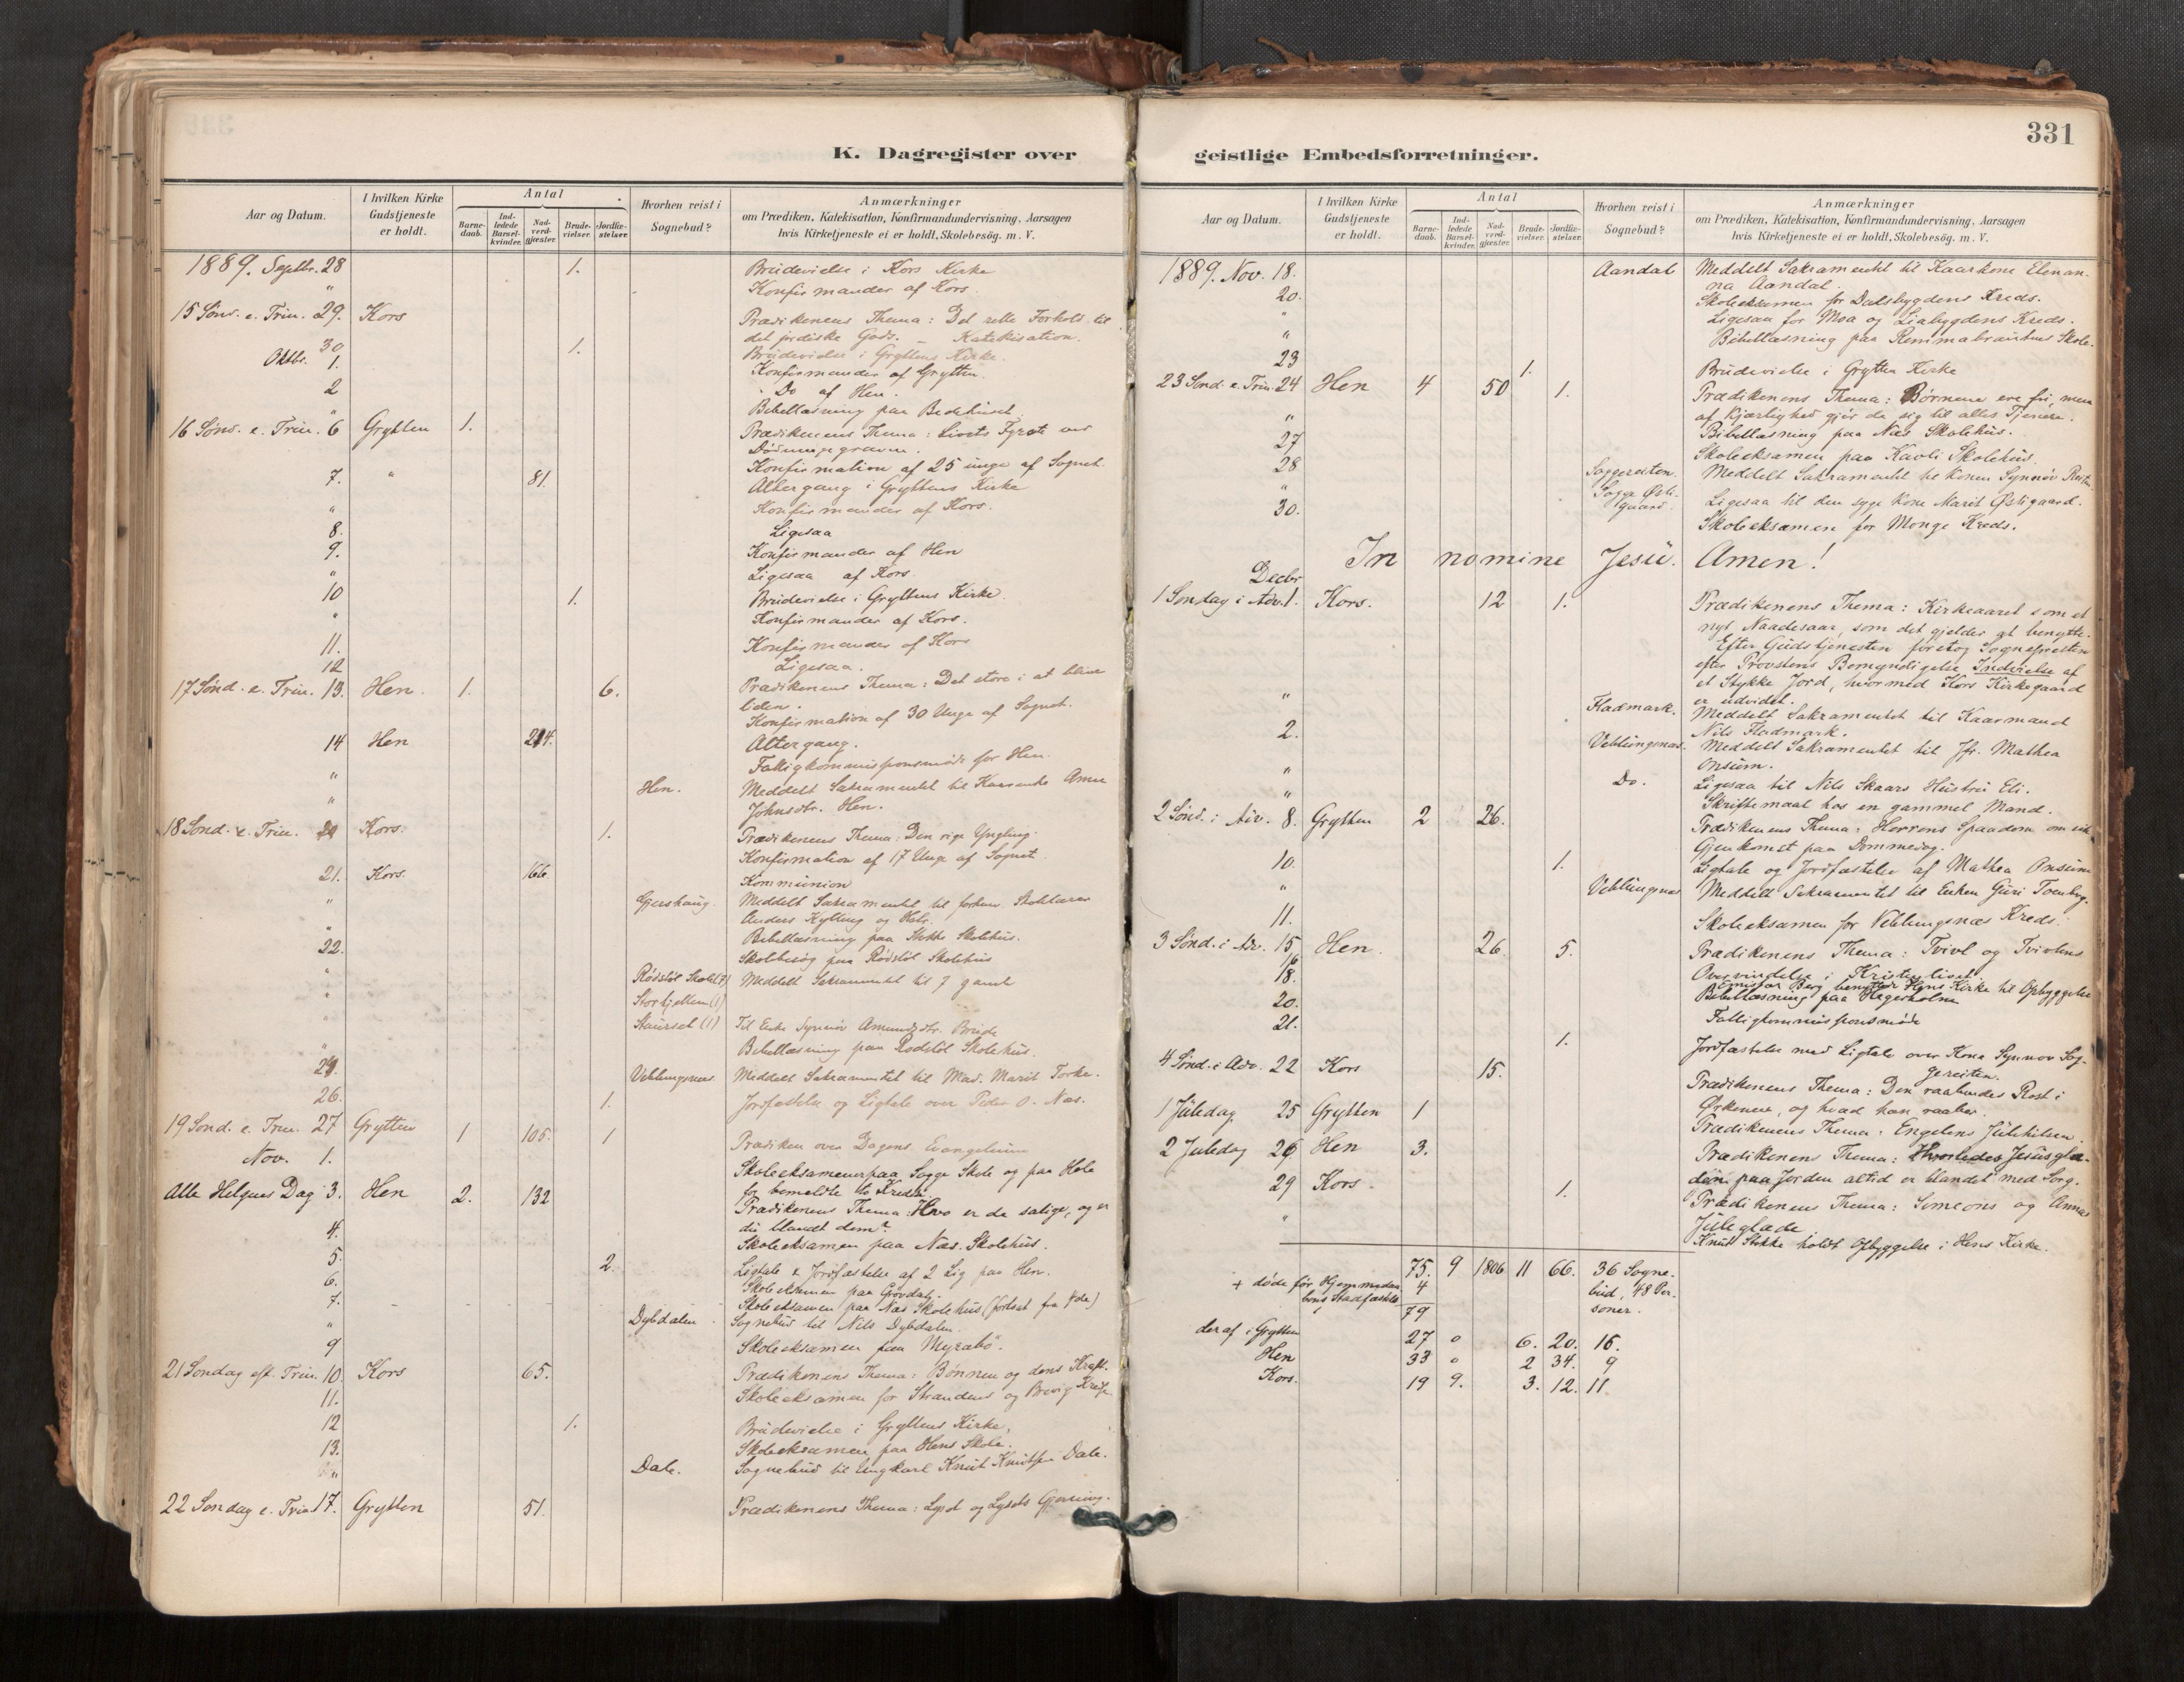 K. Dagregister over
Aar og Datum.
I hvilken Kirke Gudstjeneste er holdt.
Antal
Barne-daab.
Ind-ledede Barsel-kvinder.
Nad-verd-gjæster.
Brude-vielser.
Jordfæ-stelser.
Hvorhen reist i Sognebud?
Anmærkninger
om Prædiken, Katekisation, Konfirmandundervisning, Aarsagen
hvis Kirketjeneste ei er holdt, Skolebesög. m. V.
1889. Septbr. 28 1. Brudevielse i Kors Kirke
" Konfirmander af Kors.
15 Sønd. e. Trin. 29. Kors Prædikenens Thema: Det rette Forhold til
det jordiske Gods. – Katekisation.
30 1. Brudevielse i Gryttens Kirke.
Oktbr. 1. Konfirmander af Grytten.
2 Do af Hen.
" Bibellæsning paa Bedehuset
16 Sønd. e. Trin. 6 Grytten 1. Prædikenens Thema: Livets Fyrste ved
Konfirmation af 25 unge af Sognet.
7. " 81. Altergang i Gryttens Kirke
" Konfirmander af Kors.
8. Ligesaa
9. Konfirmander af Hen
" Ligesaa af Kors.
10 1. Brudevielse i Gryttens Kirke.
" Konfirmander af Kors.
11. Konfirmander af Kors
12 Ligesaa.
17 Sønd. e. Trin. 13. Hen. 1. 6. Prædikenens Thema: Det store i at blive
liden.
Konfirmation af 30 Unge af Sognet.
14 Hen 214. Altergang.
" Fattigkommissionsmøde for Hen.
" Hen. Meddelt Sakramentet til Kaarenke Anne
Johnsdtr. Hen.
18 Sond. e. Trin. 20 Kors. 1. Prædikenens Thema: Den rige Yngling.
Konfirmation af 17 Unge af Sognet.
21. Kors. 166. Kommunion
" Gjershaug. Meddelt Sakramentet til forhenv. Skolelærer
Anders Kylling og Hstr.
" Bibellæsning paa Stokke Skolehus.
22. Skolebesøg paa Rødstøl Skolehus
" Rødstøl Skole(7) Meddelt Sakramentet til 7 gamle
" Storhjellen (1)
" Staurset (1) Til Enke Synnøv Amundsdtr. Brude
" Bibellæsning paa Rødstøl Skolehus.
24. Veblungsnæs. Meddelt Sakramentet til Mad. Marit Torke.
26. 1. Jordfæstelse og Ligtale over Peder O. Næs.
19 Sond. e. Trin. 27 Grytten 1 105. 1 Prædiken over Dagens Evangelium
Nov. 1. Skoleeksamener paa Sogge Skole og paa Hole
for bemeldte to Kredse.
Alle Helgens Dag 3. Hen 2. 132 Prædikenens Thema: Hvo er de salige, og er
du blandt dem?
4. Skoleeksamen paa Næs. Skolehus.
5. 2. Ligtale & Jordfæstelse af 2 Lig paa Hen.
6. Skoleeksamen paa Grøvdal.
7. Skoleeksamen paa Næs Skolehus (fortsat fra 4de)
" Dybdalen Sognebud til Nils Dybdalen.
9 Skoleeksamen paa Myrabø.
21 Søndag eft. Trin. 10. Kors 65. Prædikenens Thema: Bønnen og dens Kraft.
11. Skoleeksamen for Strandens og Brevig Kredse
12 1. Brudevielse i Gryttens Kirke.
13. Skoleeksamen paa Hens Skole.
" Dale. Sognebud til Ungkarl Knut Knutsen Dale.
22 Søndag e. Trin. 17. Grytten 51. Prædikenens Thema: Lyset og Lysets Gjerning.
331
geistlige Embedsforretninger.
Aar og Datum.
I hvilken Kirke Gudstjeneste er holdt.
Antal
Barne-daab.
Ind-ledede Barsel-kvinder.
Nad-verd-gjæster.
Brude-vielser.
Jordfæ-stelser.
Hvorhen reist i Sognebud?
Anmærkninger
om Prædiken, Katekisation, Konfirmandundervisning, Aarsagen
hvis Kirketjeneste ei er holdt, Skolebesög. m. V.
1889. Nov. 18. Aandal Meddelt Sakramentet til Kaarkone Elenan-
na Aandal.
20. Skoleeksamen for Dalsbygdens Kreds.
" Ligesaa for Moa og Liabygdens Kreds.
" Bibellæsning paa Skole.
23 1. Brudevielse i Grytten Kirke
23 Sønd. e. Trin. 24 Hen 4 50 1. Prædikenens Thema: Børnene ere fri, men
af Kjærlighed gjør de sig til alles Tjenere.
" Bibellæsning paa Næs Skolehus.
27 Skoleeksamen paa Kavli Skolehus.
28 Soggereiten. Meddelt Sakramentet til Konen Synnøv
" Sogge Østi-gaard. Ligesaa til den syge Kone Marit Østigaard.
30. Skoleeksamen for Monge Kreds.
In nomine Jesu. Amen!
Decbr
1 Søndag i Adv. 1. Kors. 12 1. Prædikenens Thema: Kirkeaaret som et
nyt Naadesaar, som det gjelder at benytte.
Efter Gudstjenesten foretog Sognepresten
efter Provstens Bemyndigelse Indvielse af
et Stykke Jord, hvormed Kors Kirkegaard
er udvidet.
" Fladmark. Meddelt Sakramentet til Kaarmand
Nils Fladmark.
2. Veblungsnæs. Meddelt Sakramentet til Jfr. Mathea
Onsum.
" Do. Ligesaa til Nils Skaars Hustru Eli.
" Skriftemaal hos en gammel Mand.
2 Sønd. i Adv. 8. Grytten 2 26. Prædikenens Thema: Herrens Spaadom om sin
Gjenkomst paa Dommedag.
10. 1. Ligtale og Jordfæstelse af Mathea Onsum
" Veblungsnæs Meddelt Sakramentet til Enken Guri
11. Skoleeksamen for Veblungsnæs Kreds.
3 Sønd. i Adv. 15 Hen. 26. 5. Prædikenens Thema: Tvivl og Tvivlens
Overvindelse i Kristenlivet.
16 Emissær Berg benyttede Hens Kirke til Opbyggelse
18. Bibellæsning paa Hagerholmen
20. Fattigkommissionsmøde
21. 1. Jordfæstelse med Ligtale over Kone Synnøv Sog-
gereiten.
4 Sønd. i Adv. 22 Kors 15. Prædikenens Thema: Den raabendes Røst i
Ørkenen, og hvad han raaber.
1 Juledag 25 Grytten 1 Prædikenens Thema: Engelens Julehilsen.
2 Juledag 26 Hen 3. Prædikenens Thema: Hvorledes Jesusglæ-
den paa Jorden altid er blandet med Sorg.
29 Kors. 1. Prædikenens Thema: Simeons og Annas
Juleglæde
" Knut Stokke holdt Opbyggelse i Hens Kirke.
75. 9 1806 11 66. 36 Sogne-
bud, 48 Per-
soner.
+ døde før Hjemmedaa-
bens Stadfæstelse 4
79
deraf i Grytten 27 0 6. 20. 16.
Hen 33 0 2 34. 9
Kors. 19 9. 3. 12. 11.